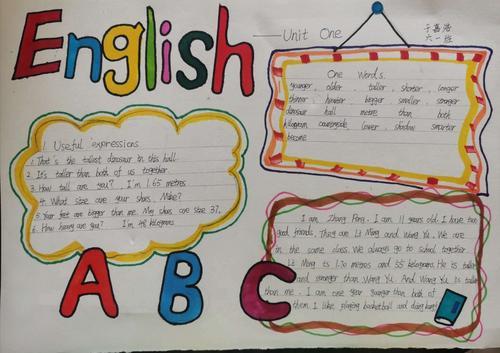 English
Unit One
于嘉浩
六一班
One Words.
younger, older, taller, shorter, longer
thinner heavier bigger smaller stronger
dinosaur hall metre than both
kilogram countryside lower, shadow smarter
become
11 Useful expressions
1. That's the tallest dinosaur in this hall.
2. It's taller than both of us together.
3. How tall are you? I'm 1.65 metres
4. What size are your shoes, Mike?
5. Your feet are bigger than me. My shoes are size 37.
6. How heavy are you? I'm 48 kilograms
I am Zhang Peng. I am 11 years old. I have two
good friends. They are Li Ming and Wang Yu. We are
in the same class. We always go to school together
Li Ming is 1.70 metres and 55 kilograms. He is taller
and stronger than Wang Yu. And Wang Yu is taller
than me. I am one year younger than both of
them. I like playing basketball and
A B C